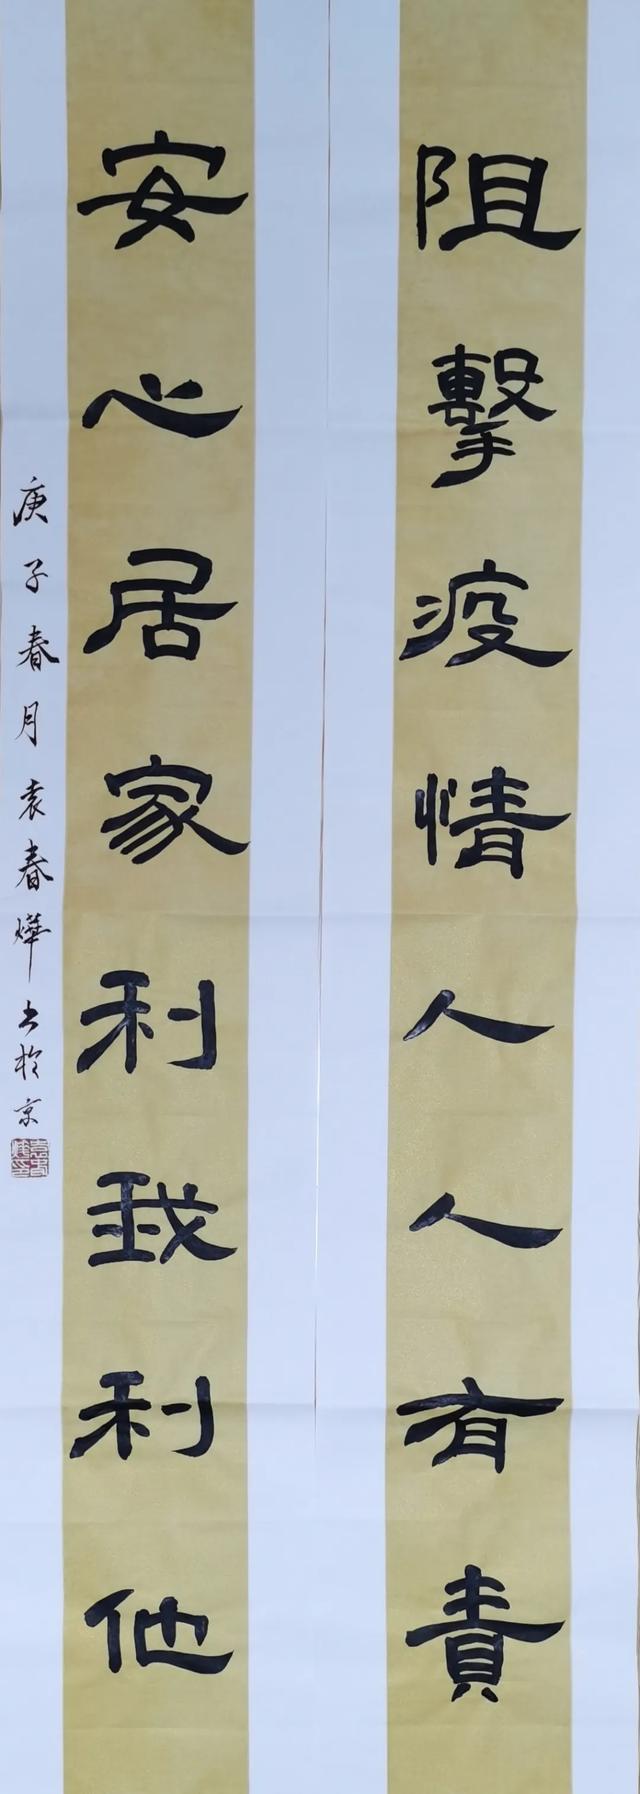 阻擊疫情人人有責
安心居家利我利他
庚子春月袁春燁书於京